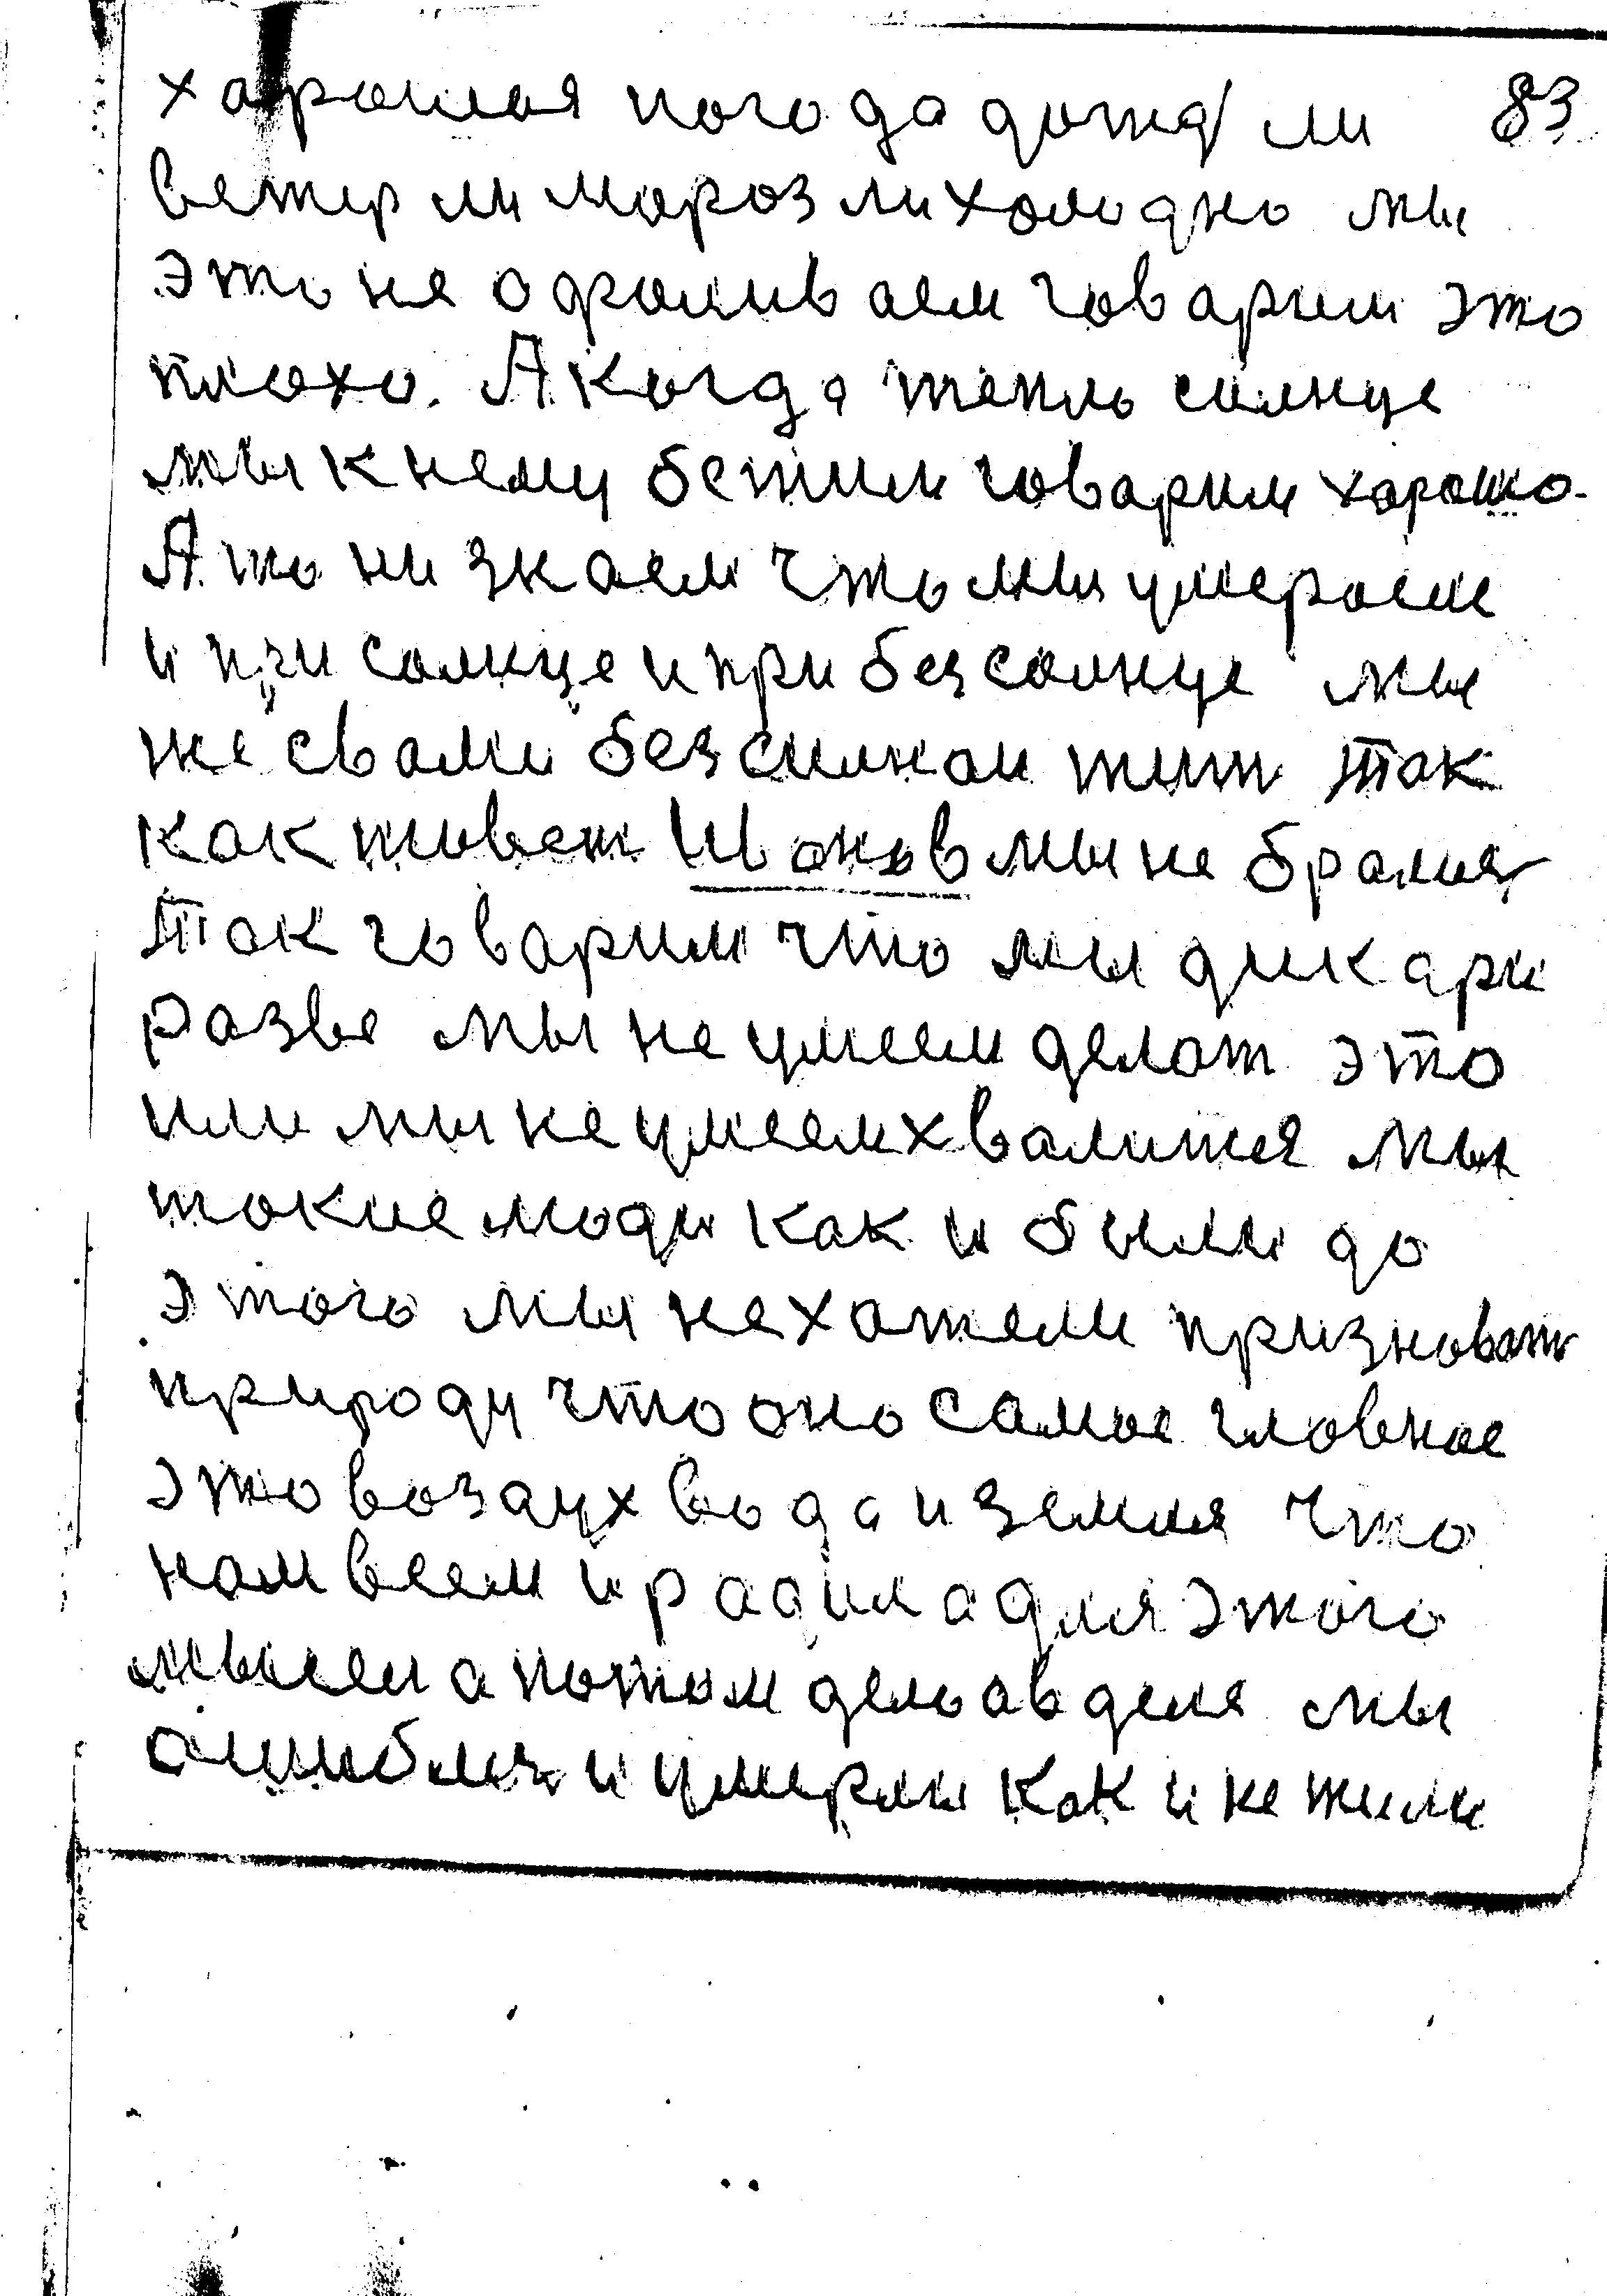 харошая погода дожд ли 83
ветир ли мороз ли холодно мы
это не одрошиваем говарим это
плохо. А когда тепло солнце
мы к нему бежим говарим харошо.
А то ни знаем что мы умераем
и при солнце и при без солнце мы
же свами без силнаи жит так
как живет Иванов мы не бралис
так говарим что мы дикари
разве мы не умеем делат это
или мы не умеем хвалится мы
такие люди как и были до
этого мы не хатели признават
природу что оно самое главное
это воздух вода и земля что
нам всем и радила для этого
мысели а потом дело авделя мы
ошиблис и умерли как и не жили